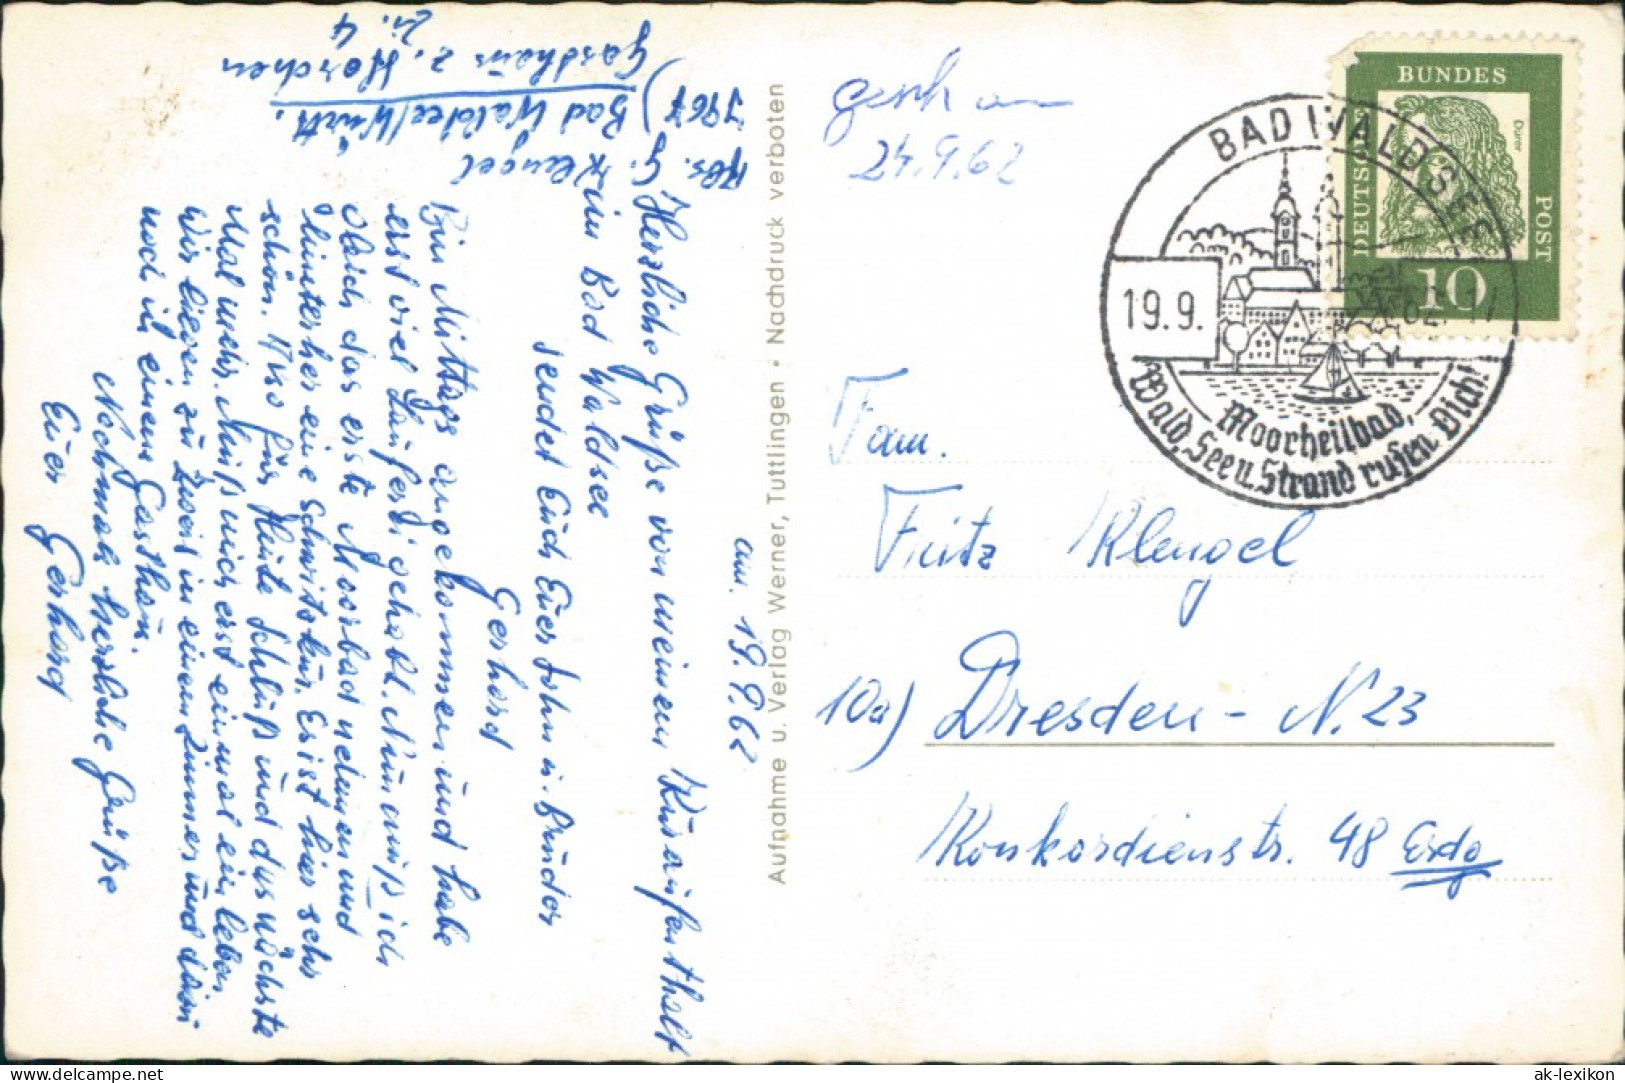 Abs. G. Klengel
7967) Bad Waldsee/Württ.
Gasthaus z. Hirschen
Zi. 4
am. 19.9.62
Herzliche Grüße von meinem Kuraufenthalt
im Bad Waldsee
sendet Euch Euer Sohn u. Bruder
Gerhard
Bin Mittags angekommen und habe
erst viel Lauferei gehabt. Nun muß ich
gleich das erste Moorbad nehmen und
hinterher eine Schwitzkur. Es ist hier sehr
schön. Also für Heute Schluß und das nächste
Mal mehr. Muß mich erst einmal einleben.
Wir liegen zu Zweit in einem Zimmer und dann
noch in einem Gasthaus.
Nochmals herzliche Grüße
Euer Gerhard
Aufnahme u. Verlag Werner, Tuttlingen • Nachdruck verboten
24.9.62
BUNDES
POST
DEUTSCHE
Dürer
10
BAD WALDSEE
19.9.
Moorheilbad,
Wald, See u. Strand rufen Dich!
Fam.
Fritz Klengel
10a) Dresden - N. 23
Konkordienstr. 48 Erdg
ak-lexikon.de